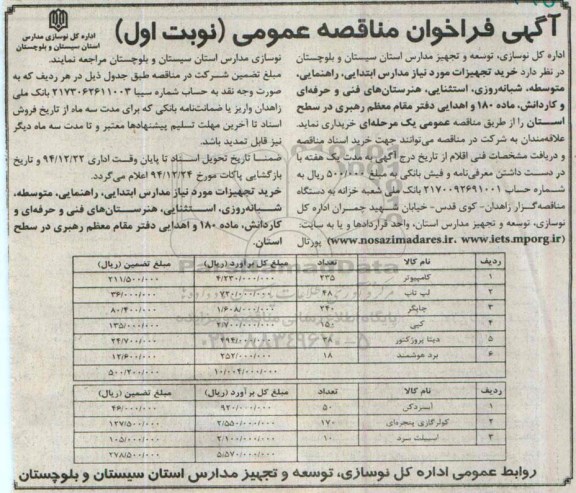 آگهی فراخوان مناقصه عمومی (نوبت اول)
اداره کل نوسازی مدارس
استان سیستان و بلوچستان
اداره کل نوسازی، توسعه و تجهیز مدارس استان سیستان و بلوچستان
در نظر دارد خرید تجهیزات مورد نیاز مدارس ابتدایی، راهنمایی،
متوسطه، شبانه‌روزی، استثنایی، هنرستان‌های فنی و حرفه‌ای
و کاردانش، ماده ۱۸۰ و اهدایی دفتر مقام معظم رهبری در سطح
استان را از طریق مناقصه عمومی یک مرحله‌ای خریداری نماید.
علاقه‌مندان به شرکت در مناقصه می‌توانند جهت خرید اسناد مناقصه
و دریافت مشخصات فنی اقلام از تاریخ درج آگهی به مدت یک هفته با
در دست داشتن معرفی‌نامه و فیش بانکی به مبلغ ۵۰۰/۰۰۰ ریال به
شماره حساب ۲۱۷۰۰۹۲۶۹۱۰۰۱ بانک ملی شعبه خزانه به دستگاه
مناقصه‌گزار زاهدان- کوی قدس- خیابان شهید چمران اداره کل
نوسازی، توسعه و تجهیز مدارس استان، واحد قراردادها و یا به سایت:
(www.nosazimadares.ir، www.iets.mporg.ir) پورتال
نوسازی مدارس استان سیستان و بلوچستان مراجعه نمایند.
مبلغ تضمین شرکت در مناقصه طبق جدول ذیل در هر ردیف که به
صورت وجه نقد به حساب شماره سیبا ۲۱۷۳۰۶۲۶۱۱۰۰۳ بانک ملی
زاهدان واریز یا ضمانت‌نامه بانکی که برای مدت سه ماه از تاریخ فروش
اسناد تا آخرین مهلت تسلیم پیشنهادها معتبر و تا مدت سه ماه دیگر
نیز قابل تمدید باشد.
ضمنا تاریخ تحویل اسناد تا پایان وقت اداری ۹۴/۱۲/۲۲ و تاریخ
بازگشایی پاکات مورخ ۹۴/۱۲/۲۴ اعلام می‌گردد.
خرید تجهیزات مورد نیاز مدارس ابتدایی، راهنمایی، متوسطه،
شبانه‌روزی، استثنایی، هنرستان‌های فنی و حرفه‌ای و
کاردانش، ماده ۱۸۰ و اهدایی دفتر مقام معظم رهبری در سطح
استان.
ردیف نام کالا تعداد مبلغ کل برآورد (ریال) مبلغ تضمین (ریال)
۱ کامپیوتر ۲۳۵ ۴/۲۳۰/۰۰۰/۰۰۰ ۲۱۱/۵۰۰/۰۰۰
۲ لپ تاپ ۴۸ ۷۲۰/۰۰۰/۰۰۰ ۳۶/۰۰۰/۰۰۰
۳ چاپگر ۲۴۰ ۱/۶۰۸/۰۰۰/۰۰۰ ۸۰/۴۰۰/۰۰۰
۴ کپی ۱۵۰ ۲/۷۰۰/۰۰۰/۰۰۰ ۱۳۵/۰۰۰/۰۰۰
۵ دیتا پروژکتور ۳۸ ۴۹۴/۰۰۰/۰۰۰ ۲۴/۷۰۰/۰۰۰
۶ برد هوشمند ۱۸ ۲۵۲/۰۰۰/۰۰۰ ۱۲/۶۰۰/۰۰۰
۱۰/۰۰۴/۰۰۰/۰۰۰ ۵۰۰/۲۰۰/۰۰۰
ردیف نام کالا تعداد مبلغ کل برآورد (ریال) مبلغ تضمین (ریال)
۱ آبسردکن ۵۰ ۹۲۰/۰۰۰/۰۰۰ ۴۶/۰۰۰/۰۰۰
۲ کولرگازی پنجره‌ای ۱۷۰ ۲/۵۵۰/۰۰۰/۰۰۰ ۱۲۷/۵۰۰/۰۰۰
۳ اسپیلت سرد ۱۰ ۲/۱۰۰/۰۰۰/۰۰۰ ۱۰۵/۰۰۰/۰۰۰
۵/۵۷۰/۰۰۰/۰۰۰ ۲۷۸/۵۰۰/۰۰۰
روابط عمومی اداره کل نوسازی، توسعه و تجهیز مدارس استان سیستان و بلوچستان